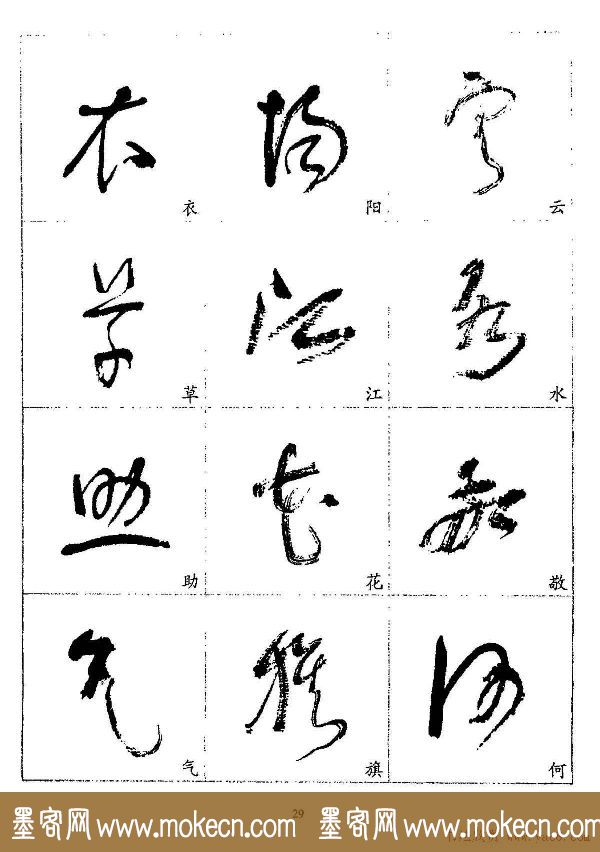 衣 阳 云
草 江 水
助 花 敬
气 旗 何
29
墨客网 www.mokecn.com 墨客网 www.mokecn.com